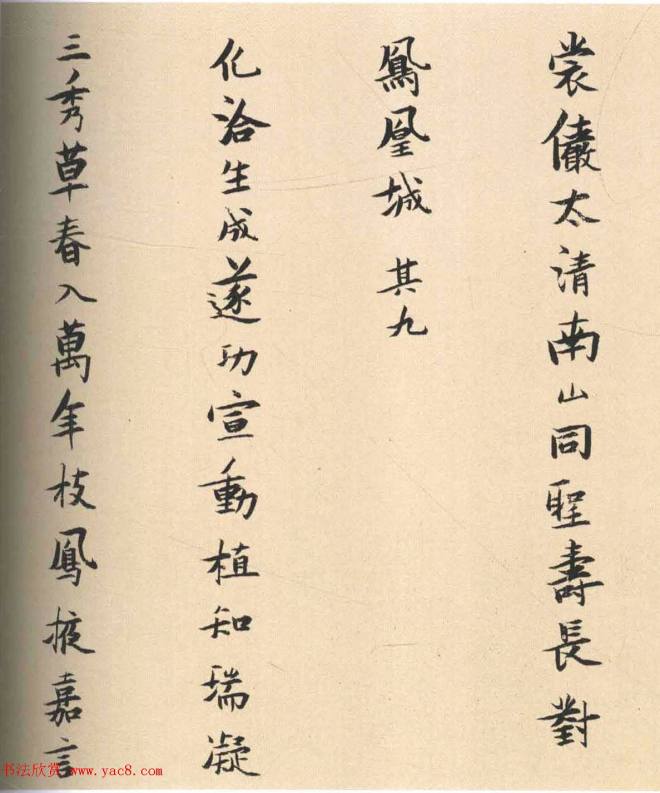 裳儼太清南山同聖壽長對
鳳凰城 其九
化洽生成遂功宣動植知瑞凝
三秀草春入萬年枝鳳掖嘉言
书法欣赏 www.yac8.com